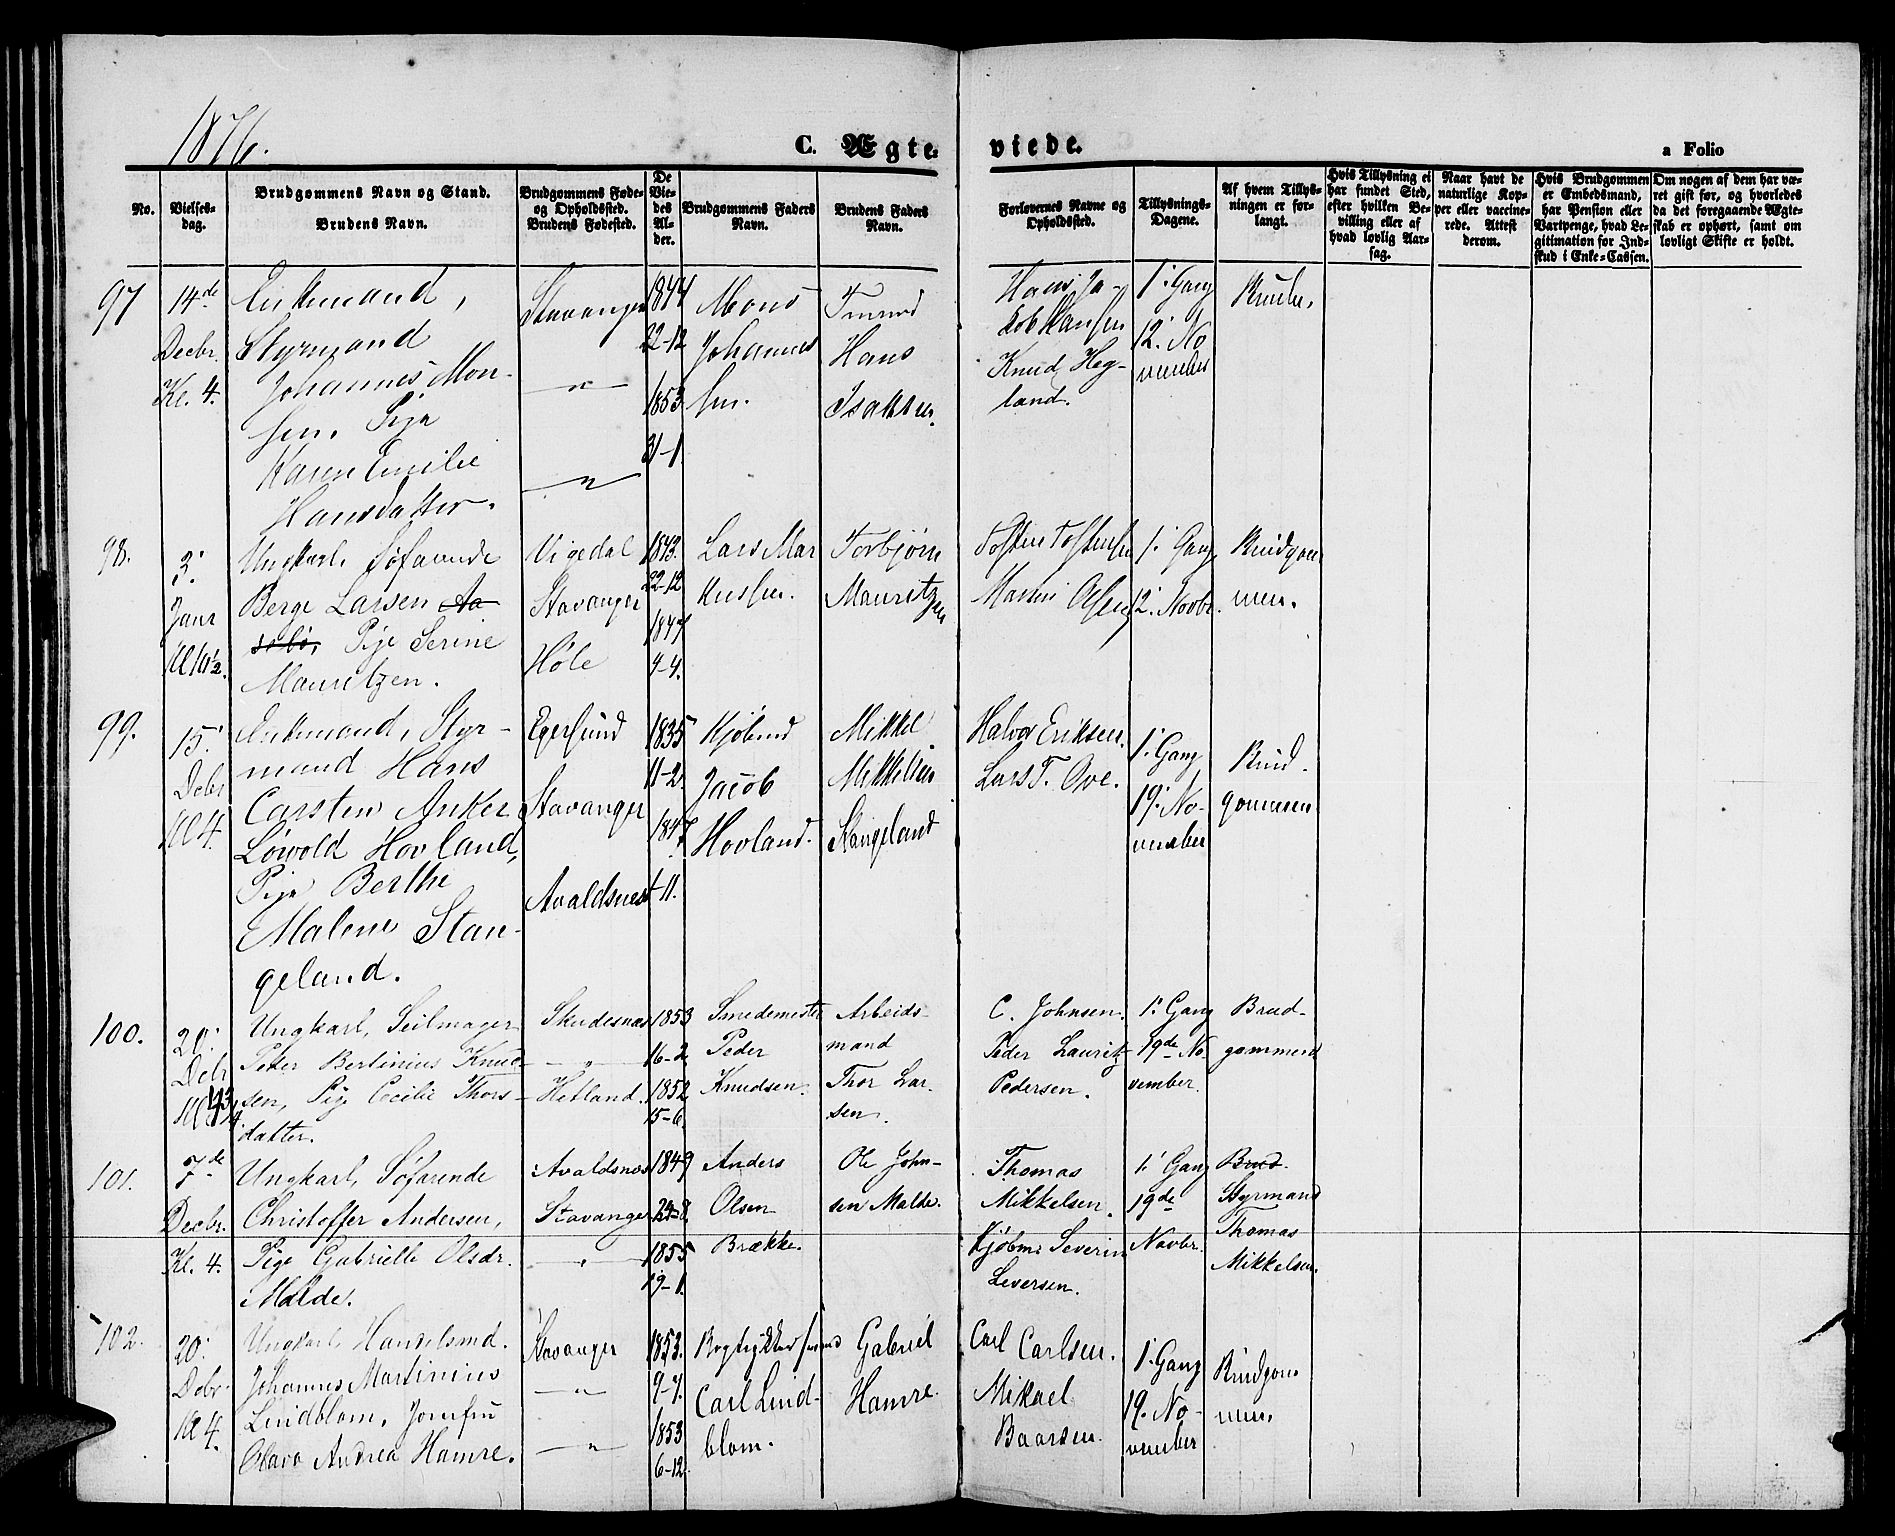 1876.
C. Ægte-
viede.
a Folio
No.
Vielses-
dag.
Brudgommens Navn og Stand.
Brudens Navn.
Brudgommens Føde-
og Opholdssted.
Brudens Fødested.
De
Vie-
des
Al-
der.
Brudgommens Faders
Navn.
Brudens Faders
Navn.
Forlovernes Navne og
Opholdssted.
Tillysnings-
Dagene.
Af hvem Tillys-
ningen er for-
langt.
Hvis Tillysning ei
har fundet Sted,
efter hvilken Be-
villing eller af
hvad lovlig Aar-
sag.
Naar havt de
naturlige Kop-
per eller vaccine-
rede. Attest
derom.
Hvis Brudgommen
er Embedsmand,
har Pension eller
Vartpenge, hvad Le-
gitimation for Ind-
skud i Enke-Cassen.
Om nogen af dem har væ-
ret gift før, og hvorledes
da det foregaaende Ægte-
skab er ophørt, samt om
lovligt Skifte er holdt.
97
14de
Decbr.
Kl. 4.
Enkemand,
Styrmand
Johannes Mon-
sen. Pige
Karen Emilie
Hansdatter.
Stavanger
—"—
—"—
1844
22-12
1853
31-1
Mons
Johannes
sen.
Hans
Isaksen.
Hans Ja-
kob Hansen
Knud Heg-
land.
1. Gang
12. No
vember
98.
3.
Janr
Kl 10½.
Ungkarl, søfarende
Berge Larsen Aa-
Pige Serine
Mauritzen.
Vigedal
Stavanger
Høle
1843.
22-12
1847
4-4.
Lars Mar
kussen.
Torbjørn
Mauritz
sen
Tosten Tostensen
Martin Olsen
1. Gang
12. Novbr.
Brudgom
men.
99.
15.
Debr
Kl 4.
Enkemand, Styr-
mand Hans
Carsten Anker
Løwold Hovland,
Pige Berthe
Malene Stan-
geland.
Egersund
Stavanger
Avaldsnes
1835
11-2
1847
-11.
Kjøbmd
Jacob
Hovland.
Mikkel
Mikkelsen
Stangeland
Halvor Eriksen.
Lars T. Ove.
1. Gang
19. No-
vember
Brud-
gommen
100.
20.
Debr
Ungkarl, Seilmager
Peter Bertinius Knud-
sen, Pige Cecilie Thors-
datter.
Skudesnæs
—"—
Hetland.
1853
16-2
1852
15-6.
Smedemester
Peder
Knudsen.
Arbeids-
mand
Thor Lar-
sen.
C. Johnsen.
Peder Lauritz
Pedersen.
1. Gang
19de No-
vember.
Brud-
gommen
101.
7de
Decbr.
Kl. 4.
Ungkarl, Søfarende
Christoffer Andersen,
Pige Gabrielle Olsdr.
Malde.
Avaldsnæs
Stavanger
—"—
1849
24-8
1855
19-1.
Anders
Olsen
Brække.
Ole John-
sen Malde.
Thomas
Mikkelsen.
Kjøbm. Severin
Seversen.
1. Gang
19de
Novbr.
Brud-
Styrmand
Thomas
Mikkelsen.
102.
20.
Debr.
Kl 4.
Ungkarl, Handelsmd.
Johannes Martinius
Lindblom, Jomfru
Olava Andrea Hamre.
Stavanger
—"—
—"—
1853.
9-7.
1853
6-12
Carl Lind-
blom.
Gabriel
Hamre
Carl Carlsen.
Mikael
Baarsen.
1. Gang
19. No-
vember
Brudgom
men.